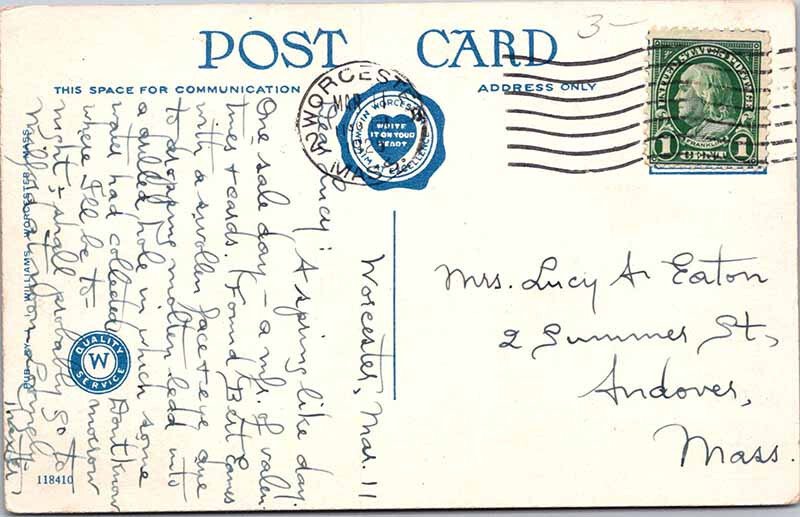 3-
POST CARD
THIS SPACE FOR COMMUNICATION
ADDRESS ONLY
WORCESTER
MAR
MASS.
WORCESTER
WRITE
IT ON YOUR
HEART
UNITED STATES POSTAGE
FRANKLIN
1 CENT 1
Worcester, Mar. 11
Dear Lucy: A spring like day.
One sale day – a mfr. of valen-
tines & cards. Found Bert Eames
with a swollen face & eye due
to dropping molten lead into
a drilled hole in which some
water had collected. Don't know
where I'll be to morrow
night; shall probably go to
Milford at noon. Lovingly
Mrs. Lucy A. Eaton
2 Summer St.,
Andover,
Mass.
PUB. BY J. I. WILLIAMS, WORCESTER, MASS.
QUALITY
W
SERVICE
118410